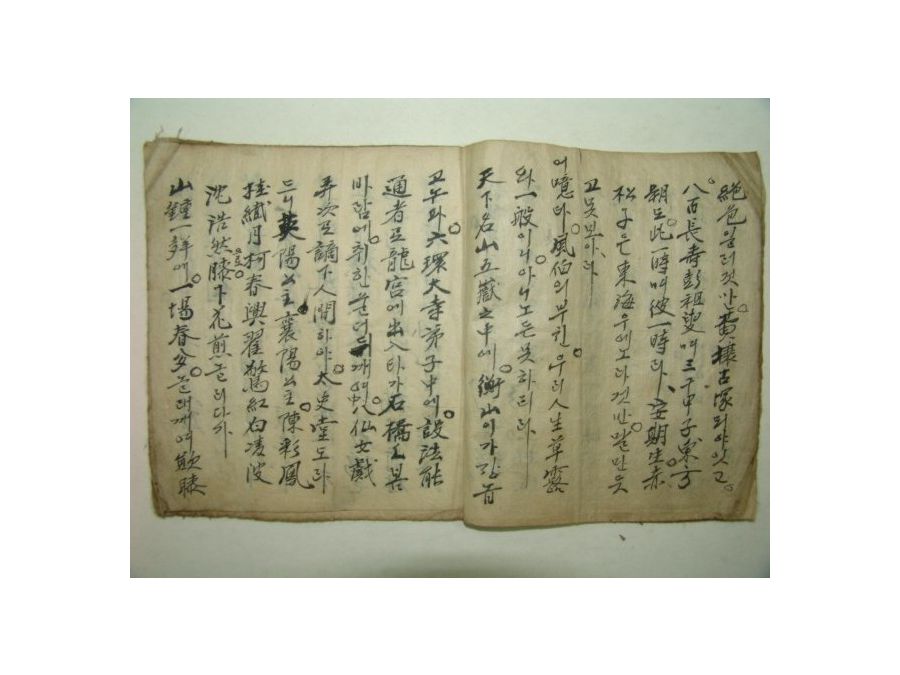 絶色일러것만黃壤古塚되야잇고
八百長壽彭祖望며三千甲子東方
朔도此一時며彼一時라安期生赤
松子는東海우에노라건만말만듯
고못보아라
어噫라風伯의부친우리人生草露
와一般이니아니노든못하리라
天下名山五嶽之中에衡山이가장놉
고놉다六環大寺弟子中에設法能
通者로龍宮에出入타가石橋上
바람에취한八仙女戱
弄次로謫下人間하야太史堂도라
드니英陽公主襄陽公主陳彩鳳
桂纖月柯春雲翟驚紅白凌波
沈浩然膝下花煎놀리다가
山鍾一聲에一場春夢을때개여歟膝